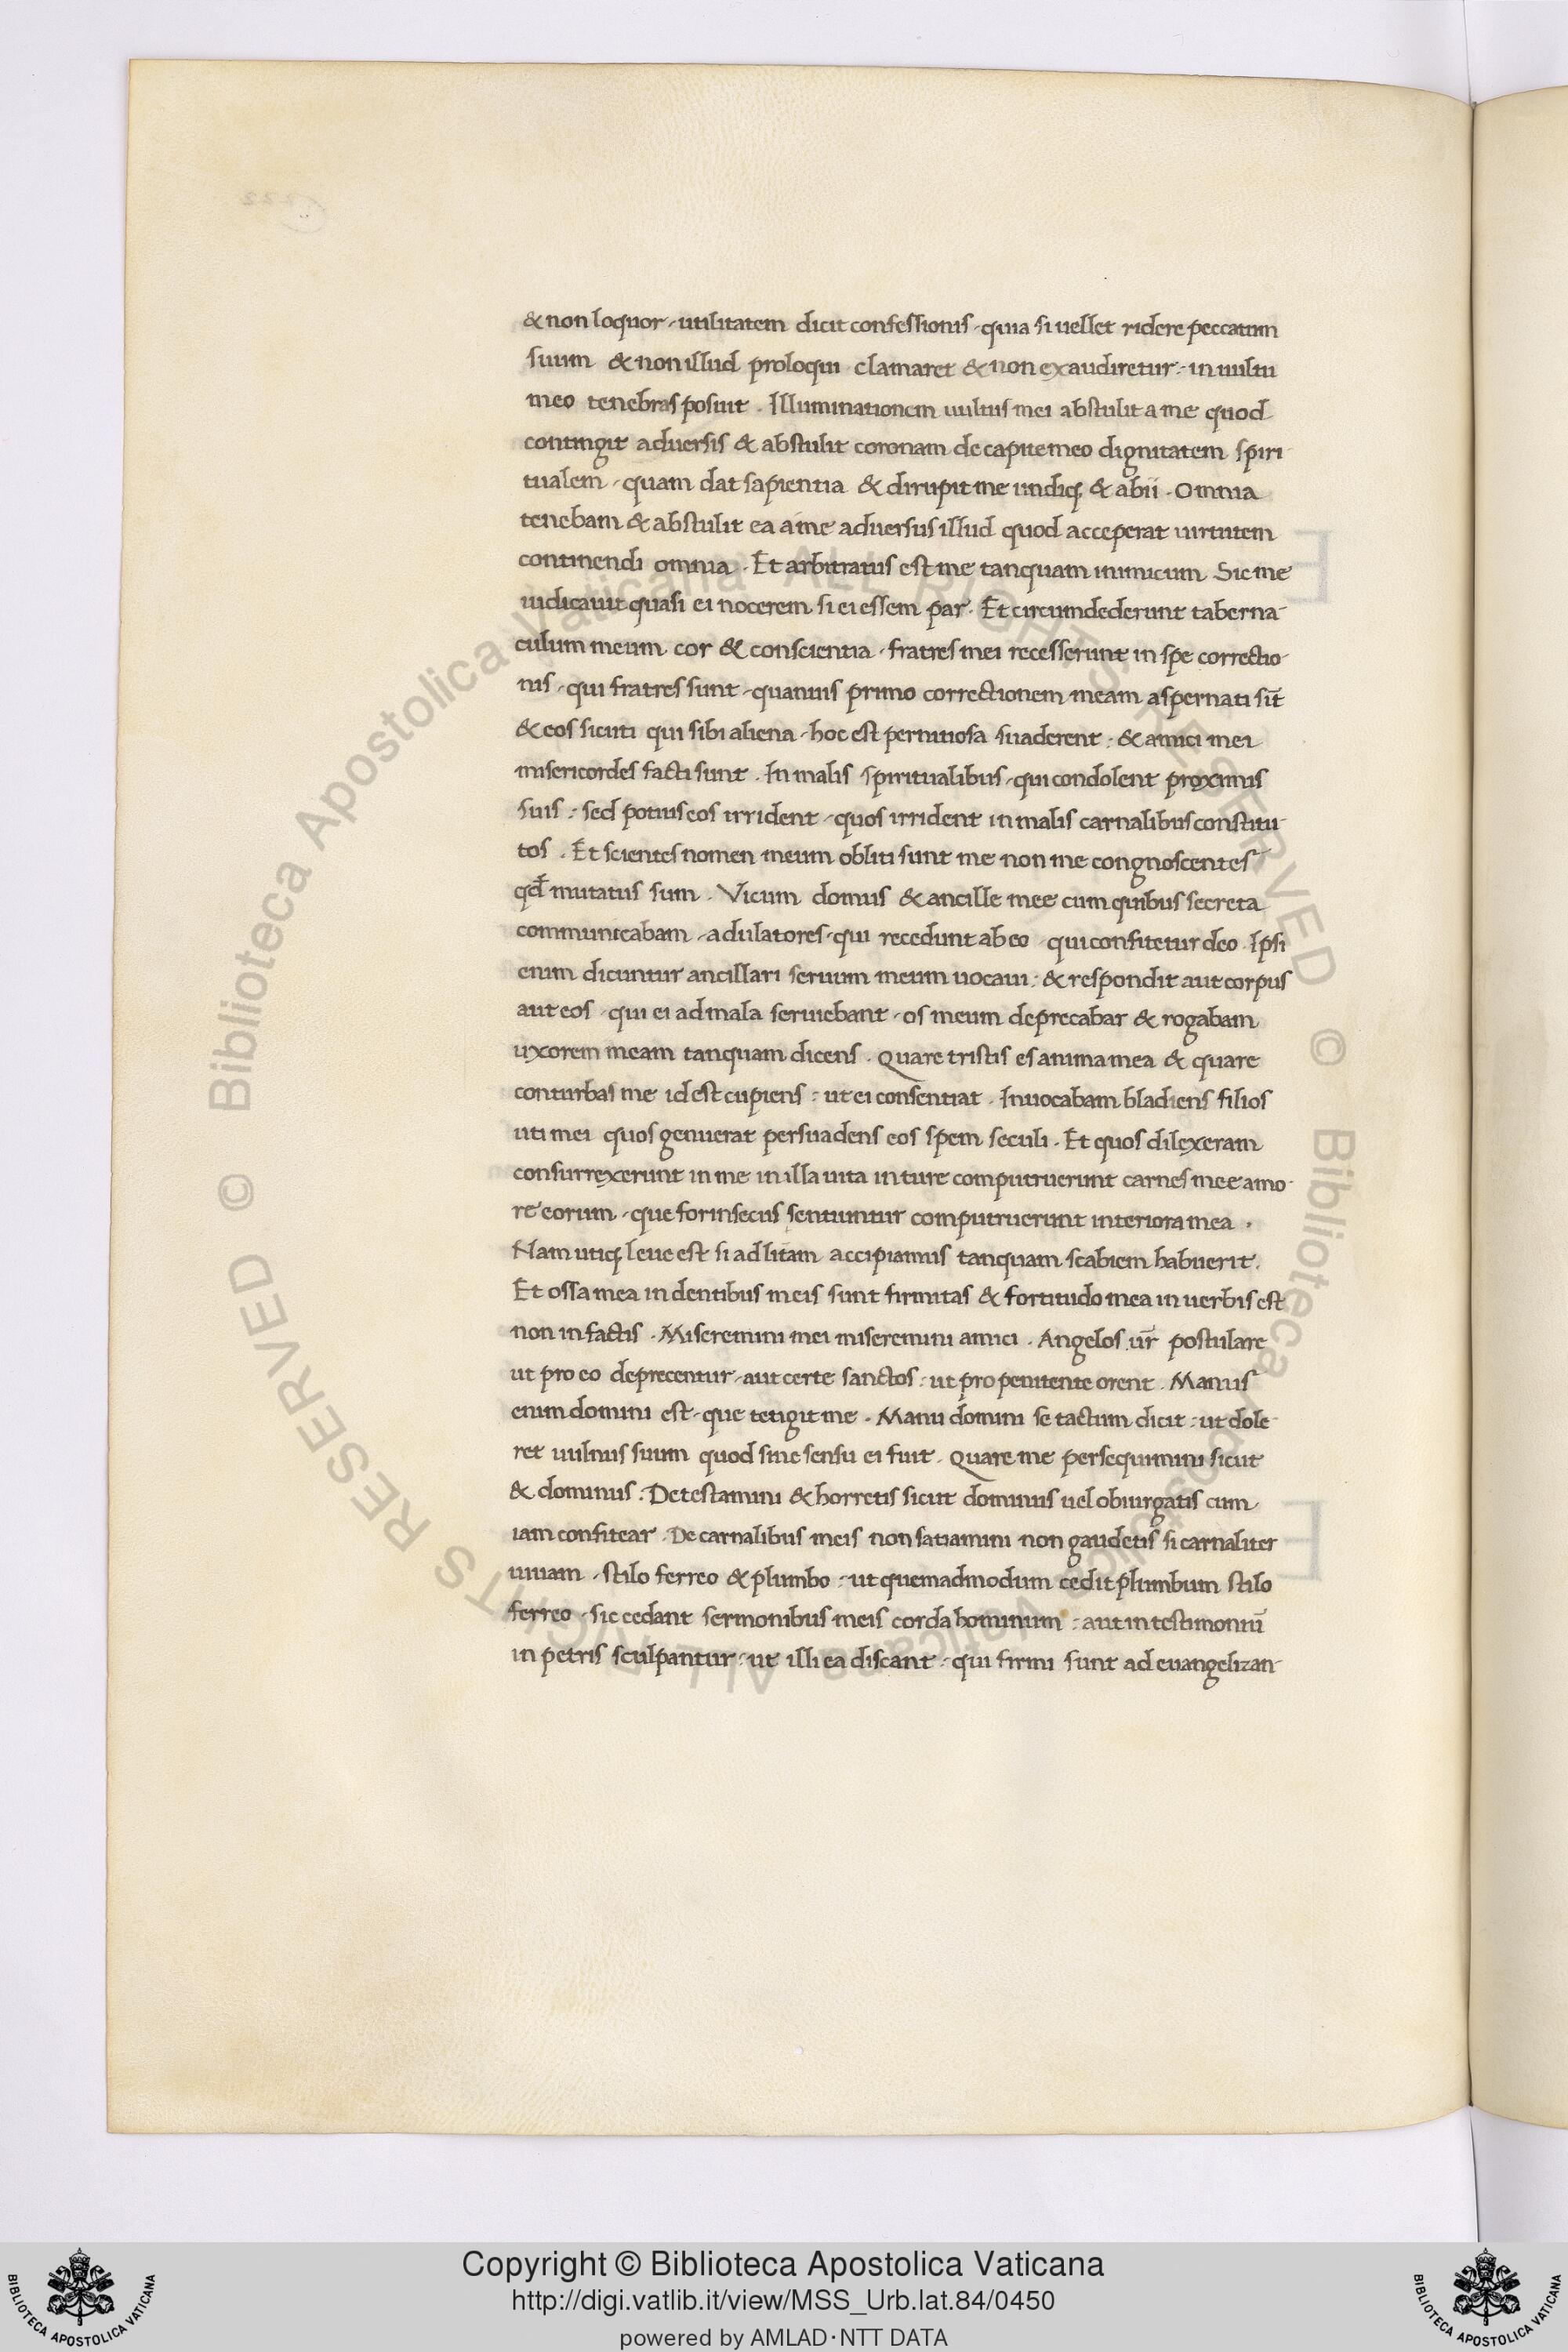 & non loquor, utilitatem dicit confessionis, quia si uellet ridere peccatum
suum & non illud proloqui clamaret & non exaudiretur: in uultu
meo tenebras posuit. Illuminationem uultus mei abstulit a me quod
contingit aduersis & abstulit coronam de capite meo dignitatem spiri
tualem, quam dat sapientia & dirupit me undiq; & abii. Omnia
tenebam & abstulit ea a me aduersus illud quod acceperat uirtutem
continendi omnia. Et arbitratus est me tanquam inimicum Sic me
iudicauit quasi ei nocerem si ei essem par. Et circumdederunt taberna-
culum meum cor & conscientia, fratres mei recesserunt in spe correctio-
nis, qui fratres sunt, quanuis primo correctionem meam aspernati sūt
& eos sicuti qui sibi aliena, hoc est pernitiosa suaderent: & amici mei
misericordes facti sunt. In malis spiritualibus, qui condolent proximis
suis: sed potius eos irrident, quos irrident in malis carnalibus constitu-
tos. Et scientes nomen meum obliti sunt me non me congnoscentes
qđ mutatus sum. Vicum domus & ancille mee cum quibus secreta
communicabam, adulatores, qui recedunt ab eo, qui confitetur deo. Ipsi
enim dicuntur ancillari seruum meum uocaui: & respondit aut corpus
aut eos, qui ei ad mala seruiebant, os meum deprecabar & rogabam
uxorem meam tanquam dicens. Quare tristis es anima mea & quare
conturbas me id est cupiens: ut ei consentiat. Inuocabam bladiens filios
uti mei quos genuerat persuadens eos spem seculi. Et quos dilexeram
consurrexerunt in me in illa uita in ture computruerunt carnes mee amo-
re eorum, que forinsecus sentiuntur computruerunt interiora mea.
Nam utiq; leue est si ad litam accipiamus tanquam scabiem habuerit.
Et ossa mea in dentibus meis sunt firmitas & fortitudo mea in uerbis est
non in factis. Miseremini mei miseremini amici. Angelos ur̄ postulare
ut pro eo deprecentur, aut certe sanctos: ut pro penitente orent. Manus
enim domini est, que tetigit me. Manu domini se tactum dicit: ut dole-
ret uulnus suum quod sine sensu ei fuit. Quare me persequimini sicut
& dominus. Detestamini & horretis sicut dominus uel obiurgatis cum
iam confitear. De carnalibus meis non satiamini non gaudetis si carnaliter
uiuam, stilo ferreo & plumbo: ut quemadmodum cedit plumbum stilo
ferreo, sic cedant sermonibus meis corda hominum: aut in testimoniū
in petris sculpantur: ut illi ea discant: qui firmi sunt ad euangelizan-
© Biblioteca Apostolica Vaticana ALL RIGHTS RESERVED
© Biblioteca Apostolica Vaticana ALL RIGHTS RESERVED
Copyright © Biblioteca Apostolica Vaticana
http://digi.vatlib.it/view/MSS_Urb.lat.84/0450
powered by AMLAD·NTT DATA
BIBLIOTECA APOSTOLICA VATICANA
BIBLIOTECA APOSTOLICA VATICANA